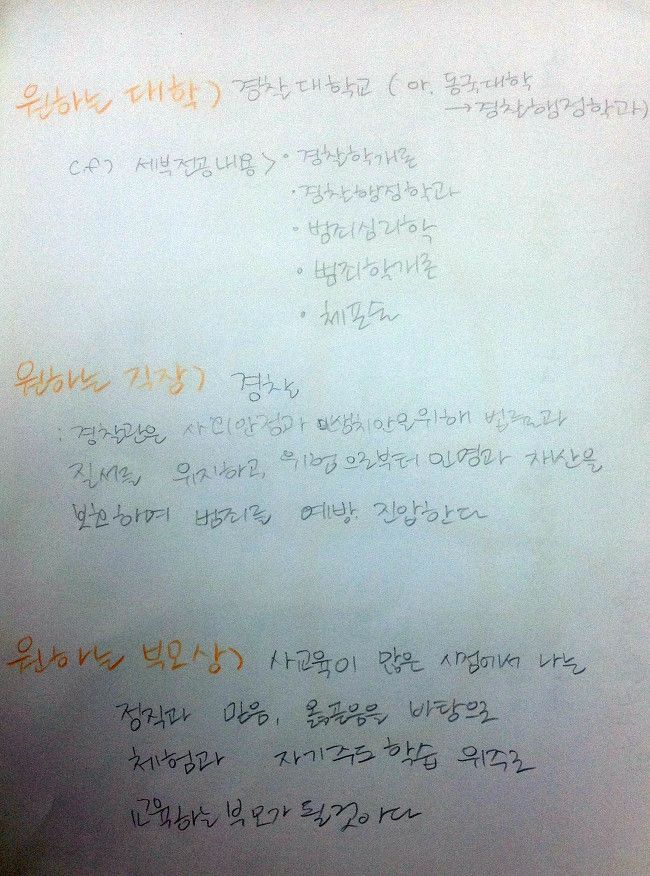 원하는 대학) 경찰대학교 (아. 동국대학
→경찰행정학과)
cf) 세부전공내용> • 경찰학개론
• 경찰행정학과
• 범죄심리학
• 범죄학개론
• 체포술
원하는 직장) 경찰
: 경찰관은 사회안정과 민생치안을위해 법률과
질서를 유지하고, 위험으로부터 인명과 재산을
보호하여 범죄를 예방. 진압한다
원하는 부모상) 사교육이 많은 시점에서 나는
정직과 믿음, 옳곧음을 바탕으로
체험과 자기주도학습 위주로
교육하는부모가 될것이다